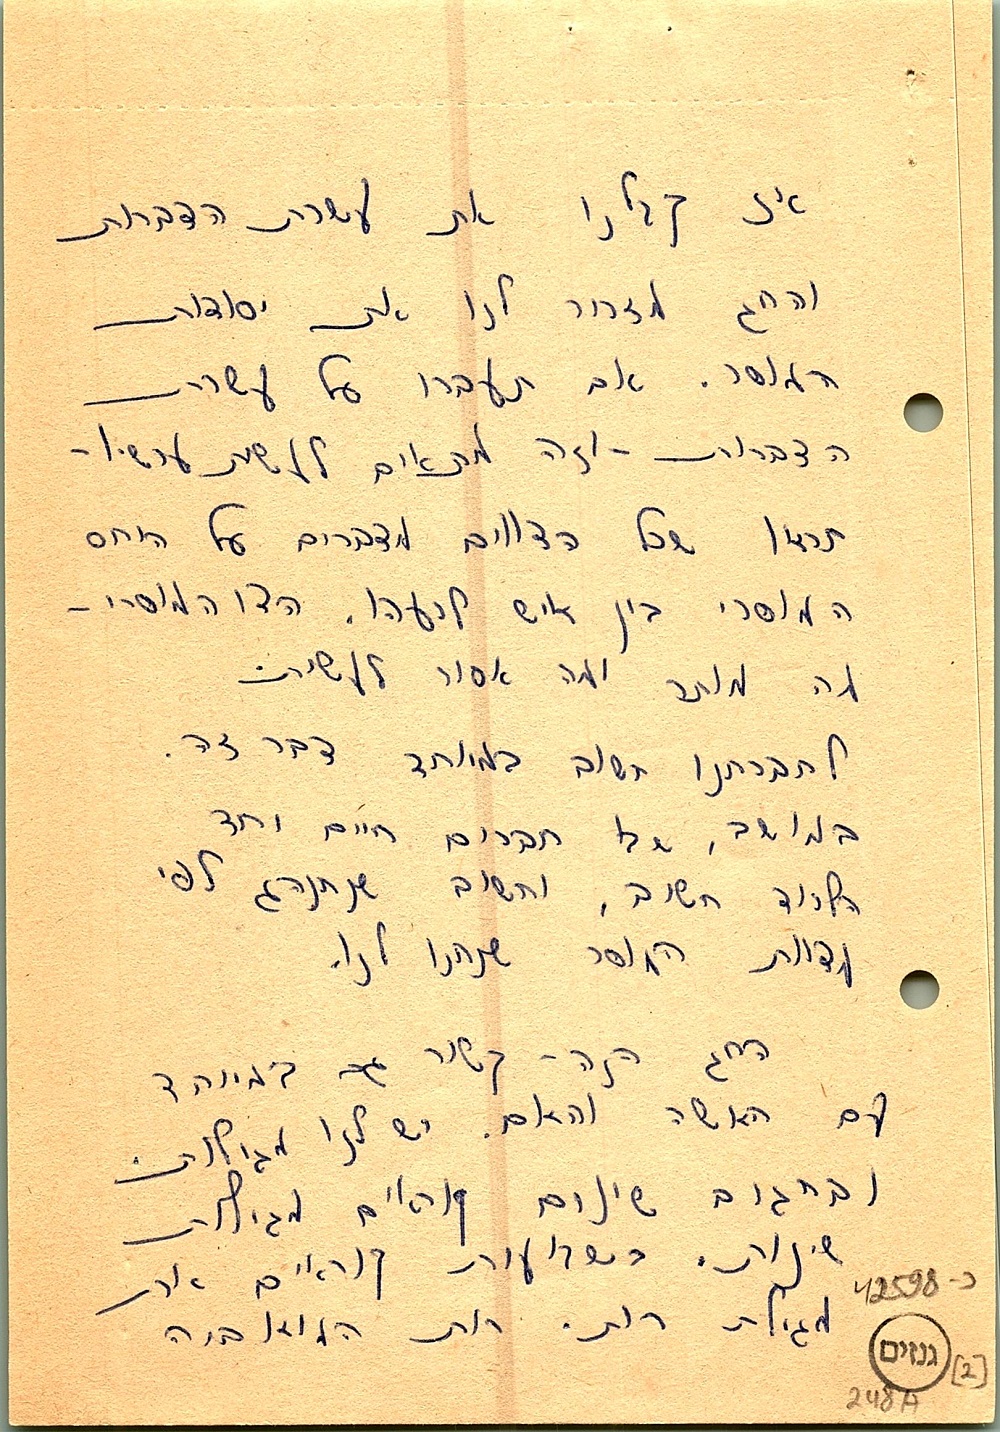 אז קבלנו את עשרת הדברות
והחג מזכיר לנו את יסודות
המוסר. אם תעברו על עשרת
הדברות - וזה מתאים לעשות עכשיו -
תראו שכל הצווים מדברים על היחס
המוסרי בין איש לרעהו. הצו המוסרי -
מה מותר ומה אסור לעשות.
לחברתנו חשוב במיוחד דבר זה.
במושב, של חברים חיים יחד
הלכוד חשוב, וחשוב שנתנהג לפי
מצוות המוסר שנתנו לנו.
החג הזה - קשור גם במיוחד
עם האשה והאם. יש לנו מגילות:
ובחגים שונים קוראים מגילות
שונות. בשבועות קוראים את
מגילת רות. רות המואביה
42598-כ
גנזים
[2]
248A